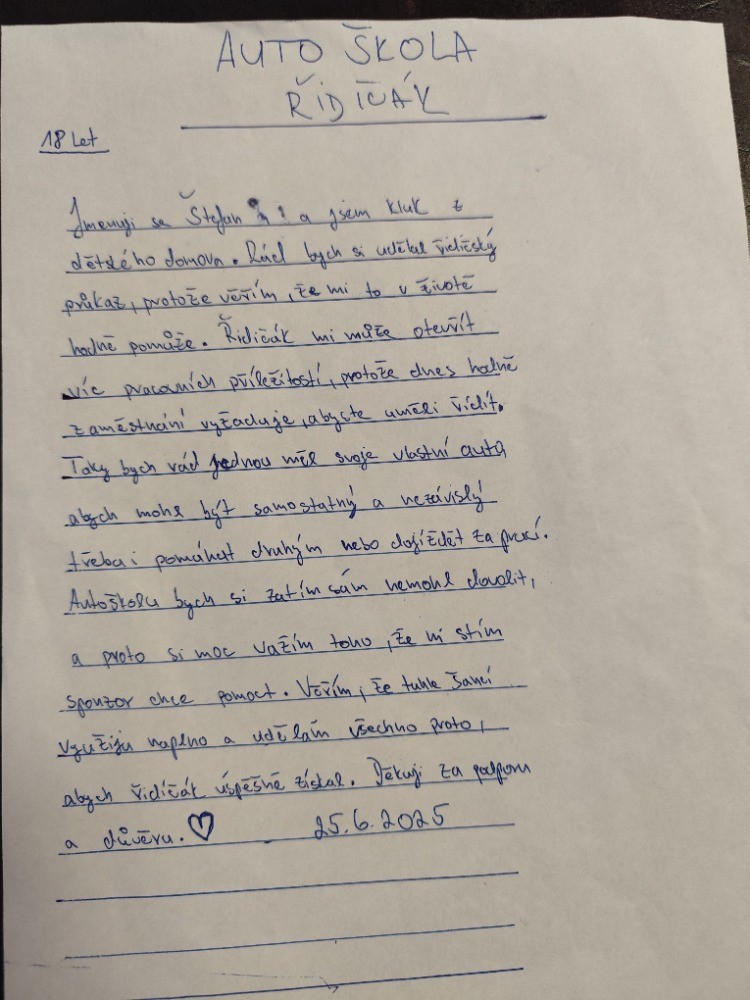 AUTO ŠKOLA
ŘIDIČÁK
18 Let
Jmenuji se Štefan a jsem kluk z
dětského domova. Rád bych si udělal řidičský
průkaz, protože věřím, že mi to v životě
hodně pomůže. Řidičák mi může otevřít
víc pracovních příležitostí, protože dnes hodně
zaměstnání vyžaduje, abyste uměli řídit.
Taky bych rád jednou měl svoje vlastní auto
abych mohl být samostatný a nezávislý
třeba i pomáhat druhým nebo dojíždět za prací.
Autoškolu bych si zatím sám nemohl dovolit,
a proto si moc vážím toho, že mi s tím
sponzor chce pomoct. Věřím, že tuhle šanci
využiju naplno a udělám všechno proto,
abych řidičák úspěšně získal. Děkuji za podporu
a důvěru. ♡ 25.6.2025